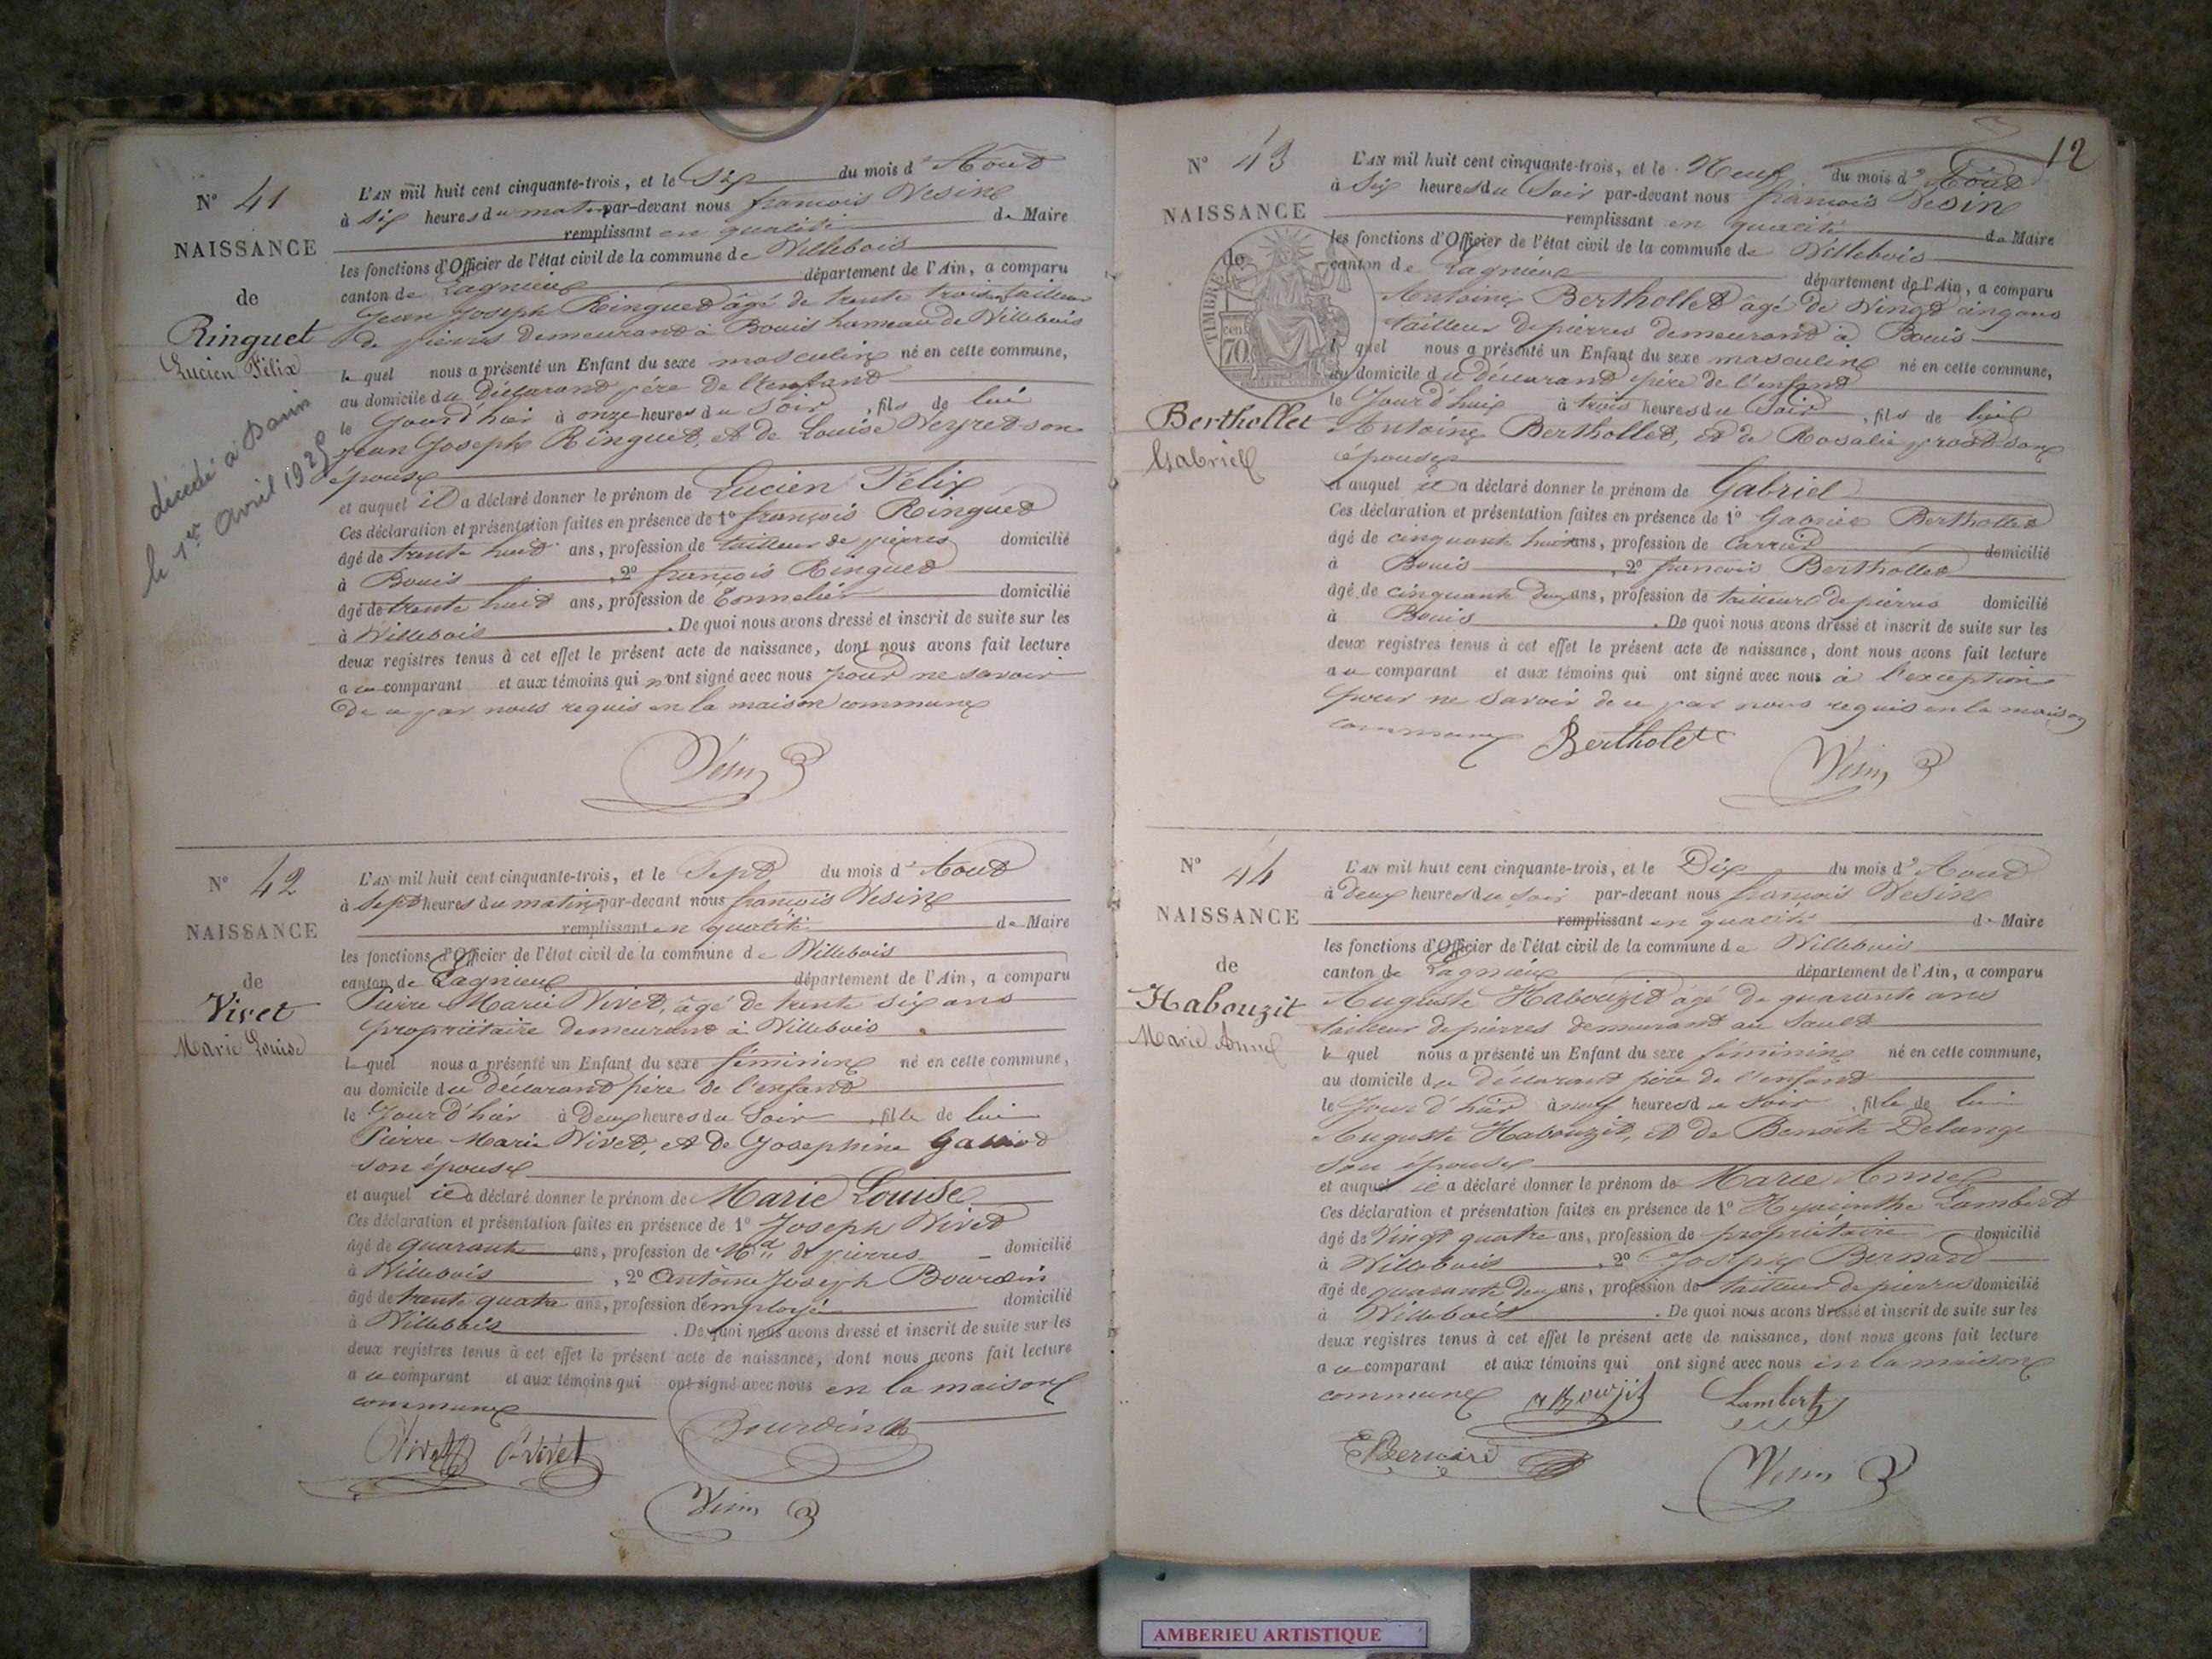 N° 41
NAISSANCE
de
Ringuet
Lucien Félix
décédé à
le 1er avril 1925
L'AN mil huit cent cinquante-trois, et le Six du mois d'Aout
à Six heures du matin par-devant nous françois Vesin
remplissant en qualité de Maire
les fonctions d'Officier de l'état civil de la commune de Villebois
canton de Lagnieu département de l'Ain, a comparu
Jean Joseph Ringuet âgé de trente trois ans tailleur
de pierres demeurant à Bouis hameau de Villebois
lequel nous a présenté un Enfant du sexe masculin né en cette commune,
au domicile du Déclarant père de l'enfant
le Jour d'hier à onze heures du Soir, fils de lui
Jean Joseph Ringuet, et de Louise Veyret son
épouse
et auquel il a déclaré donner le prénom de Lucien Felix
Ces déclaration et présentation faites en présence de 1° françois Ringuet
âgé de trente huit ans, profession de tailleur de pierres domicilié
à Bouis, 2° françois Ringuet
âgé de trente huit ans, profession de Tonnelier domicilié
à Villebois. De quoi nous avons dressé et inscrit de suite sur les
deux registres tenus à cet effet le présent acte de naissance, dont nous avons fait lecture
au comparant et aux témoins qui n'ont signé avec nous pour ne savoir
De ce par nous requis en la maison commune
Vesin
N° 42
NAISSANCE
de
Vivet
Marie Louise
L'AN mil huit cent cinquante-trois, et le Sept du mois d'Aout
à Sept heures du matin par-devant nous françois Vesin
remplissant en qualité de Maire
les fonctions d'Officier de l'état civil de la commune de Villebois
canton de Lagnieu département de l'Ain, a comparu
Pierre Marie Vivet, âgé de trente six ans
propriétaire demeurant à Villebois
lequel nous a présenté un Enfant du sexe féminin né en cette commune,
au domicile du déclarant père de l'enfant
le Jour d'hier à Deux heures du Soir, fille de lui
Pierre Marie Vivet, et de Josephine
son épouse
et auquel il a déclaré donner le prénom de Marie Louise
Ces déclaration et présentation faites en présence de 1° Joseph Vivet
âgé de quarante ans, profession de Md de pierres domicilié
à Villebois, 2° Antoine Joseph Bourdin
âgé de trente quatre ans, profession d'employé domicilié
à Villebois. De quoi nous avons dressé et inscrit de suite sur les
deux registres tenus à cet effet le présent acte de naissance, dont nous avons fait lecture
au comparant et aux témoins qui ont signé avec nous en la maison
commune
Bourdin
Vivet P Vivet
Vesin
12
N° 43
NAISSANCE
de
TIMBRE
70 cent
Berthollet
Gabriel
L'AN mil huit cent cinquante-trois, et le Neuf du mois d'Aout
à Six heures du Soir par-devant nous françois Vesin
remplissant en qualité de Maire
les fonctions d'Officier de l'état civil de la commune de Villebois
canton de Lagnieu département de l'Ain, a comparu
Antoine Berthollet âgé de Vingt cinq ans
tailleur de pierres demeurant à Bouis
lequel nous a présenté un Enfant du sexe masculin né en cette commune,
au domicile du déclarant père de l'enfant
le Jour d'hui à trois heures du Soir, fils de lui
Antoine Berthollet, et de Rosalie prost son
épouse
et auquel il a déclaré donner le prénom de Gabriel
Ces déclaration et présentation faites en présence de 1° Gabriel Berthollet
âgé de cinquante huit ans, profession de Carrier domicilié
à Bouis, 2° françois Berthollet
âgé de cinquante deux ans, profession de tailleur de pierres domicilié
à Bouis. De quoi nous avons dressé et inscrit de suite sur les
deux registres tenus à cet effet le présent acte de naissance, dont nous avons fait lecture
au comparant et aux témoins qui ont signé avec nous à l'exception
pour ne savoir de ce par nous requis en la maison
commune Bertholet
Vesin
N° 44
NAISSANCE
de
Habouzit
Marie Anne
L'AN mil huit cent cinquante-trois, et le Dix du mois d'Aout
à Deux heures du soir par-devant nous françois Vesin
remplissant en qualité de Maire
les fonctions d'Officier de l'état civil de la commune de Villebois
canton de Lagnieu département de l'Ain, a comparu
Auguste Habouzit âgé de quarante ans
tailleur de pierres demeurant au Sault
lequel nous a présenté un Enfant du sexe féminin né en cette commune,
au domicile du Déclarant père de l'enfant
le Jour d'hier à neuf heures du soir, fille de lui
Auguste Habouzit, et de Benoîte Delange
son épouse
et auquel il a déclaré donner le prénom de Marie Anne
Ces déclaration et présentation faites en présence de 1° Hyacinthe Lambert
âgé de Vingt quatre ans, profession de propriétaire domicilié
à Villebois, 2° Joseph Bernard
âgé de quarante deux ans, profession de tailleur de pierres domicilié
à Villebois. De quoi nous avons dressé et inscrit de suite sur les
deux registres tenus à cet effet le présent acte de naissance, dont nous avons fait lecture
au comparant et aux témoins qui ont signé avec nous en la maison
commune Lambert
Bernard
Vesin
AMBERIEU ARTISTIQUE